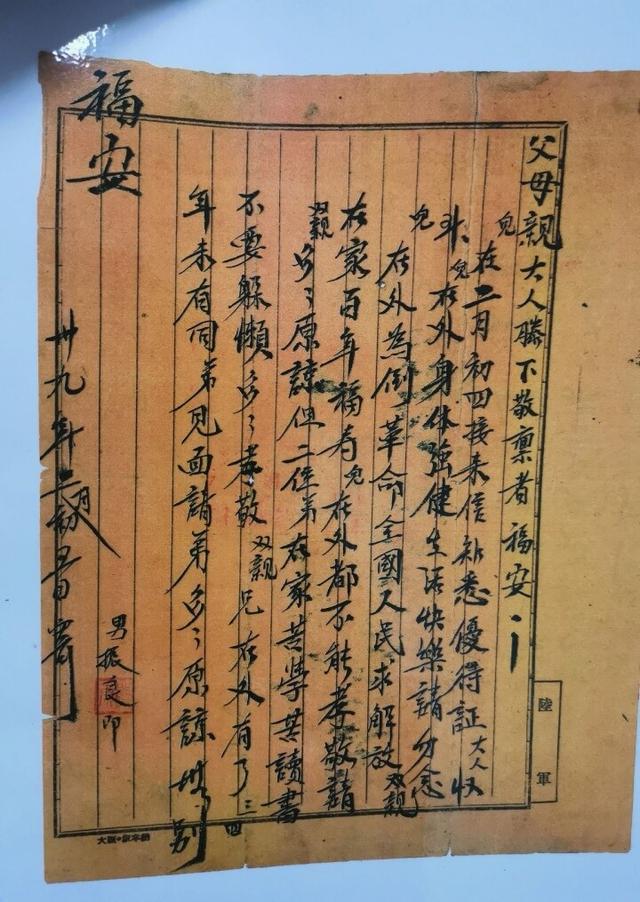 父母親大人膝下敬禀者福安
兒在二月初四接来信訴悉優得証大人収
斗兒在外身体强健生活快樂請勿念
兒在外為倒革命全國人民求解放双親
在家百年福寿兒在外都不能孝敬請
双親多々原諒但二位弟在家苦學苦讀書
不要躲懒多々孝敬双親兄在外有了三四
年未有同弟見面請弟多々原諒
福安
卅九年二月初
男振良印
陸軍